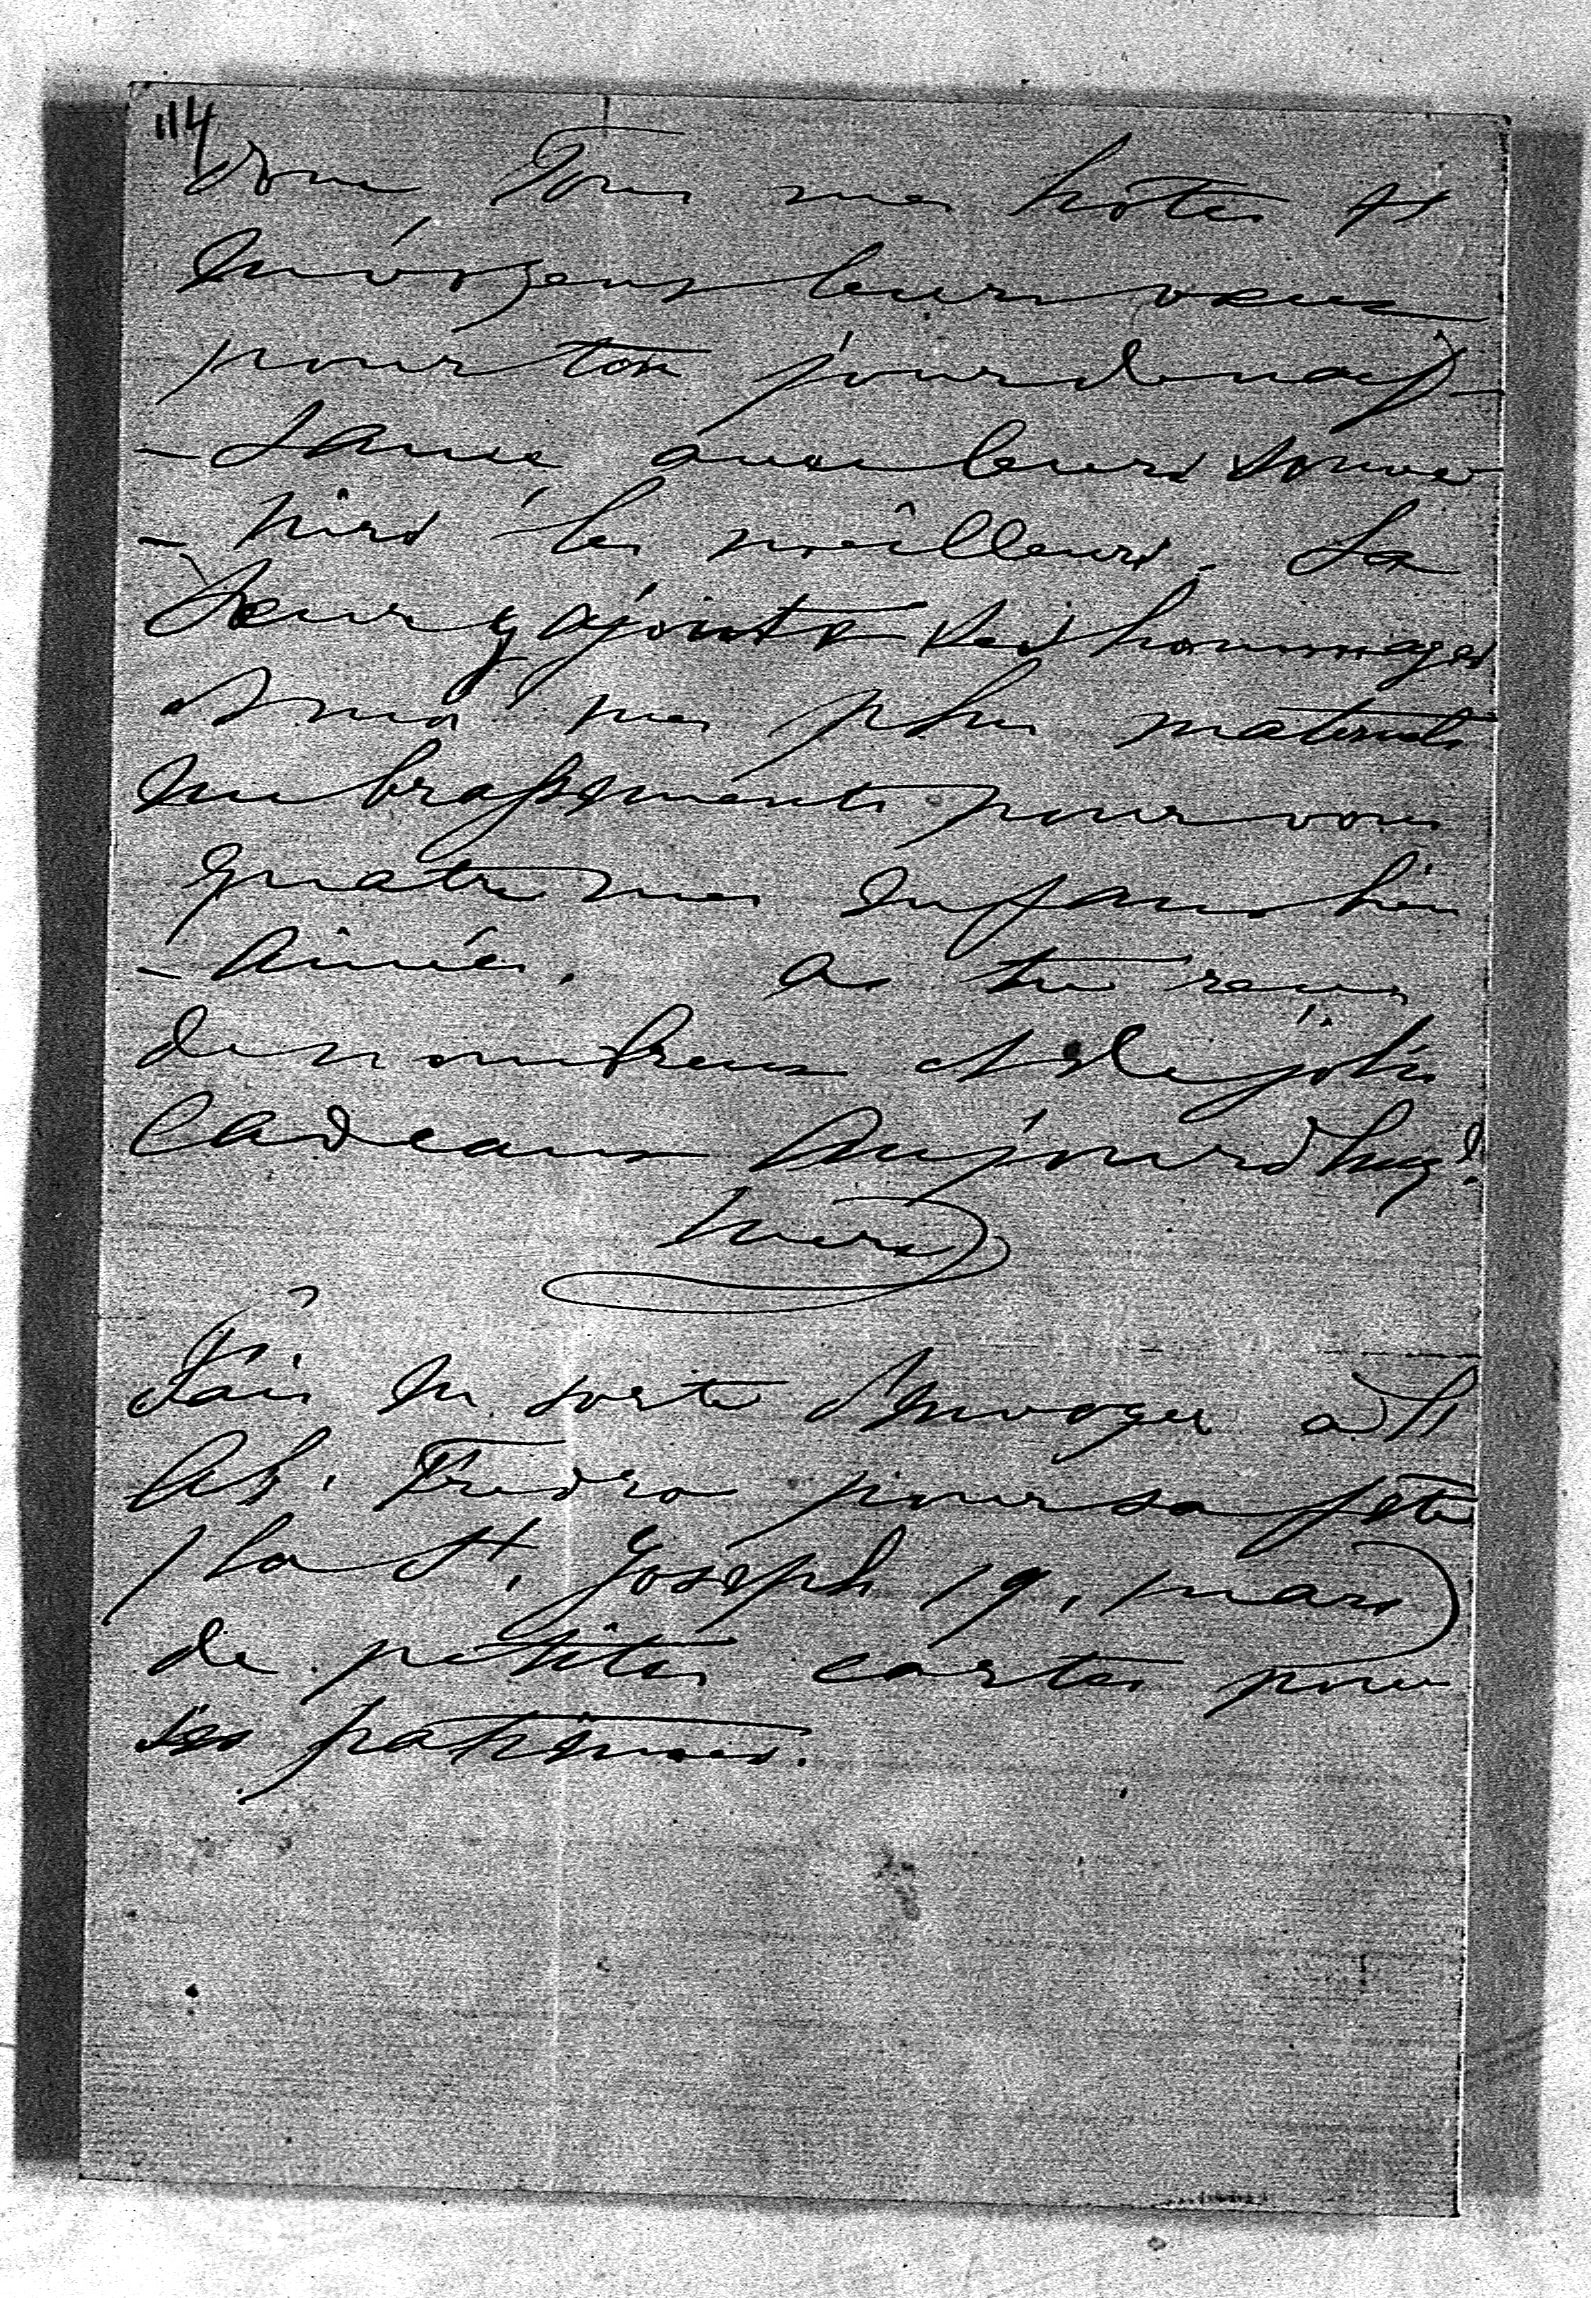 114
donc, Tous mes hôtes t'
envoyent leurs voeux
pour ton jour de nais-
-sance, avec leurs souve-
-nirs les meilleurs. La
Soeur y ajoute ses hommages
et moi mes plus maternels
embrassements pour vous
quatre mes enfans bien
-aimés. as tu reçus
de nombreux et de jolis
Cadeaux Aujourd'huy?
Mère
Fais en sorte d'envoyer à
Fredro pour sa fête
/ la St. Joseph 19. mars)
de petites cartes pour
ses patiences.